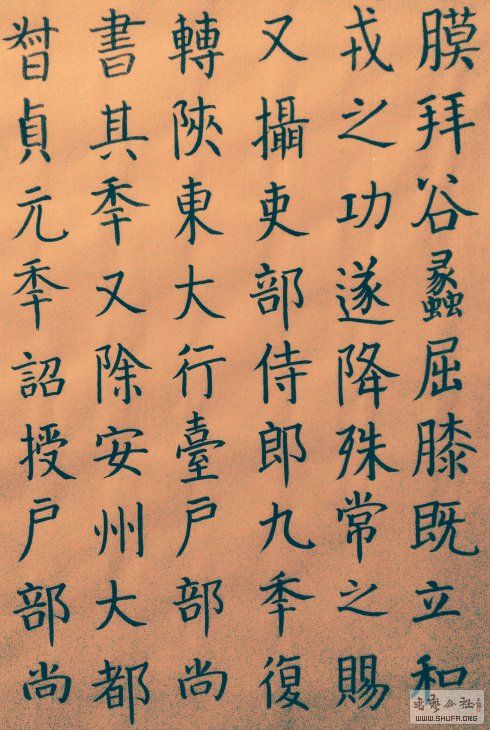 膜拜谷蠡屈膝既立和
戎之功遂降殊常之賜
又攝吏部侍郎九秊復
轉陝東大行臺户部尚
書其秊又除安州大都
督貞元秊詔授户部尚
WWW.SHUFA.ORG